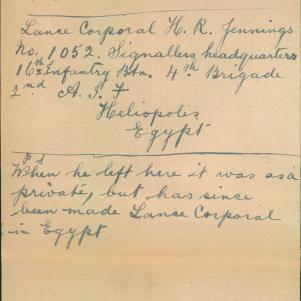 Lance Corporal H. R. Jennings
No. 1052. Signallers headquarters
16th Infantry Btn. 4th Brigade
2nd A. I. F
Heliopolis
Egypt
P S
When he left here it was as a
private, but has since
been made Lance Corporal
in Egypt